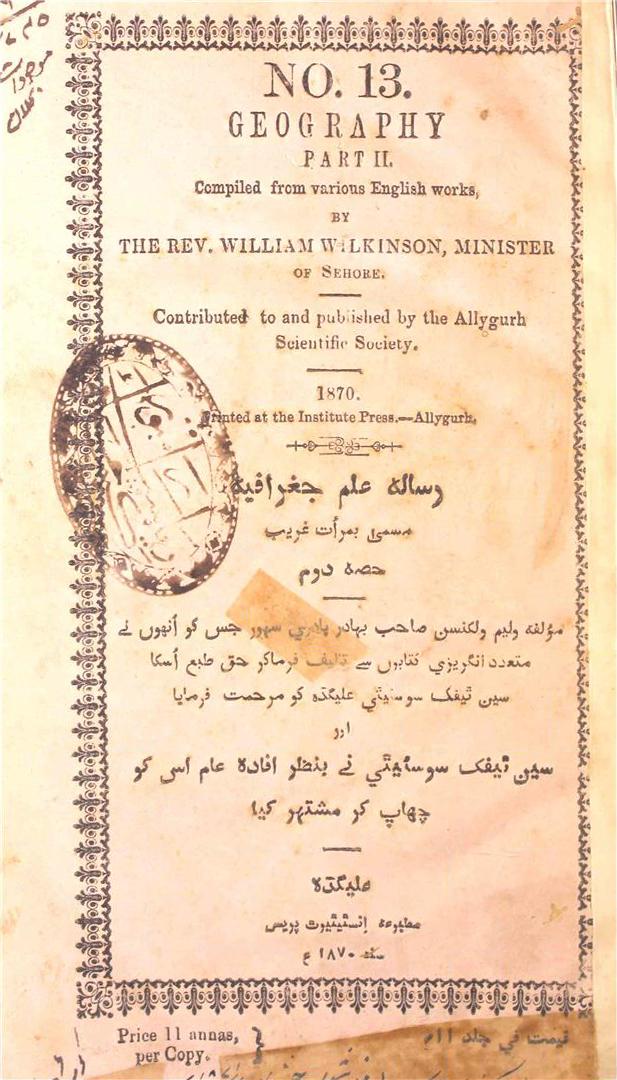 NO. 13.
GEOGRAPHY
PART II.
Compiled from various English works,
BY
THE REV. WILLIAM WILKINSON, MINISTER
OF SEHORE.
Contributed to and published by the Allygurh
Scientific Society.
1870.
Printed at the Institute Press.—Allygurh.
رساله علم جغرافیه
مسمیٰ بمرأت غریب
حصه دوم
مؤلفه ولیم ولکنسن صاحب بہادر پادري سہور جس کو اُنھوں نے
متعدد انگریزي کتابوں سے تالیف فرماکر حق طبع اُسکا
سین ٹیفک سوسئیٹي علیگڈه کو مرحمت فرمایا
اور
سین ٹیفک سوسئیٹي نے بنظر افادۂ عام اس کو
چھاپ کر مشتہر کیا
علیگڈه
مطبوعه إنسٹیٹیوٹ پریس
سنه ۱۸۷۰ ع
Price 11 annas,
per Copy.
قیمت في جلد ۱۱م